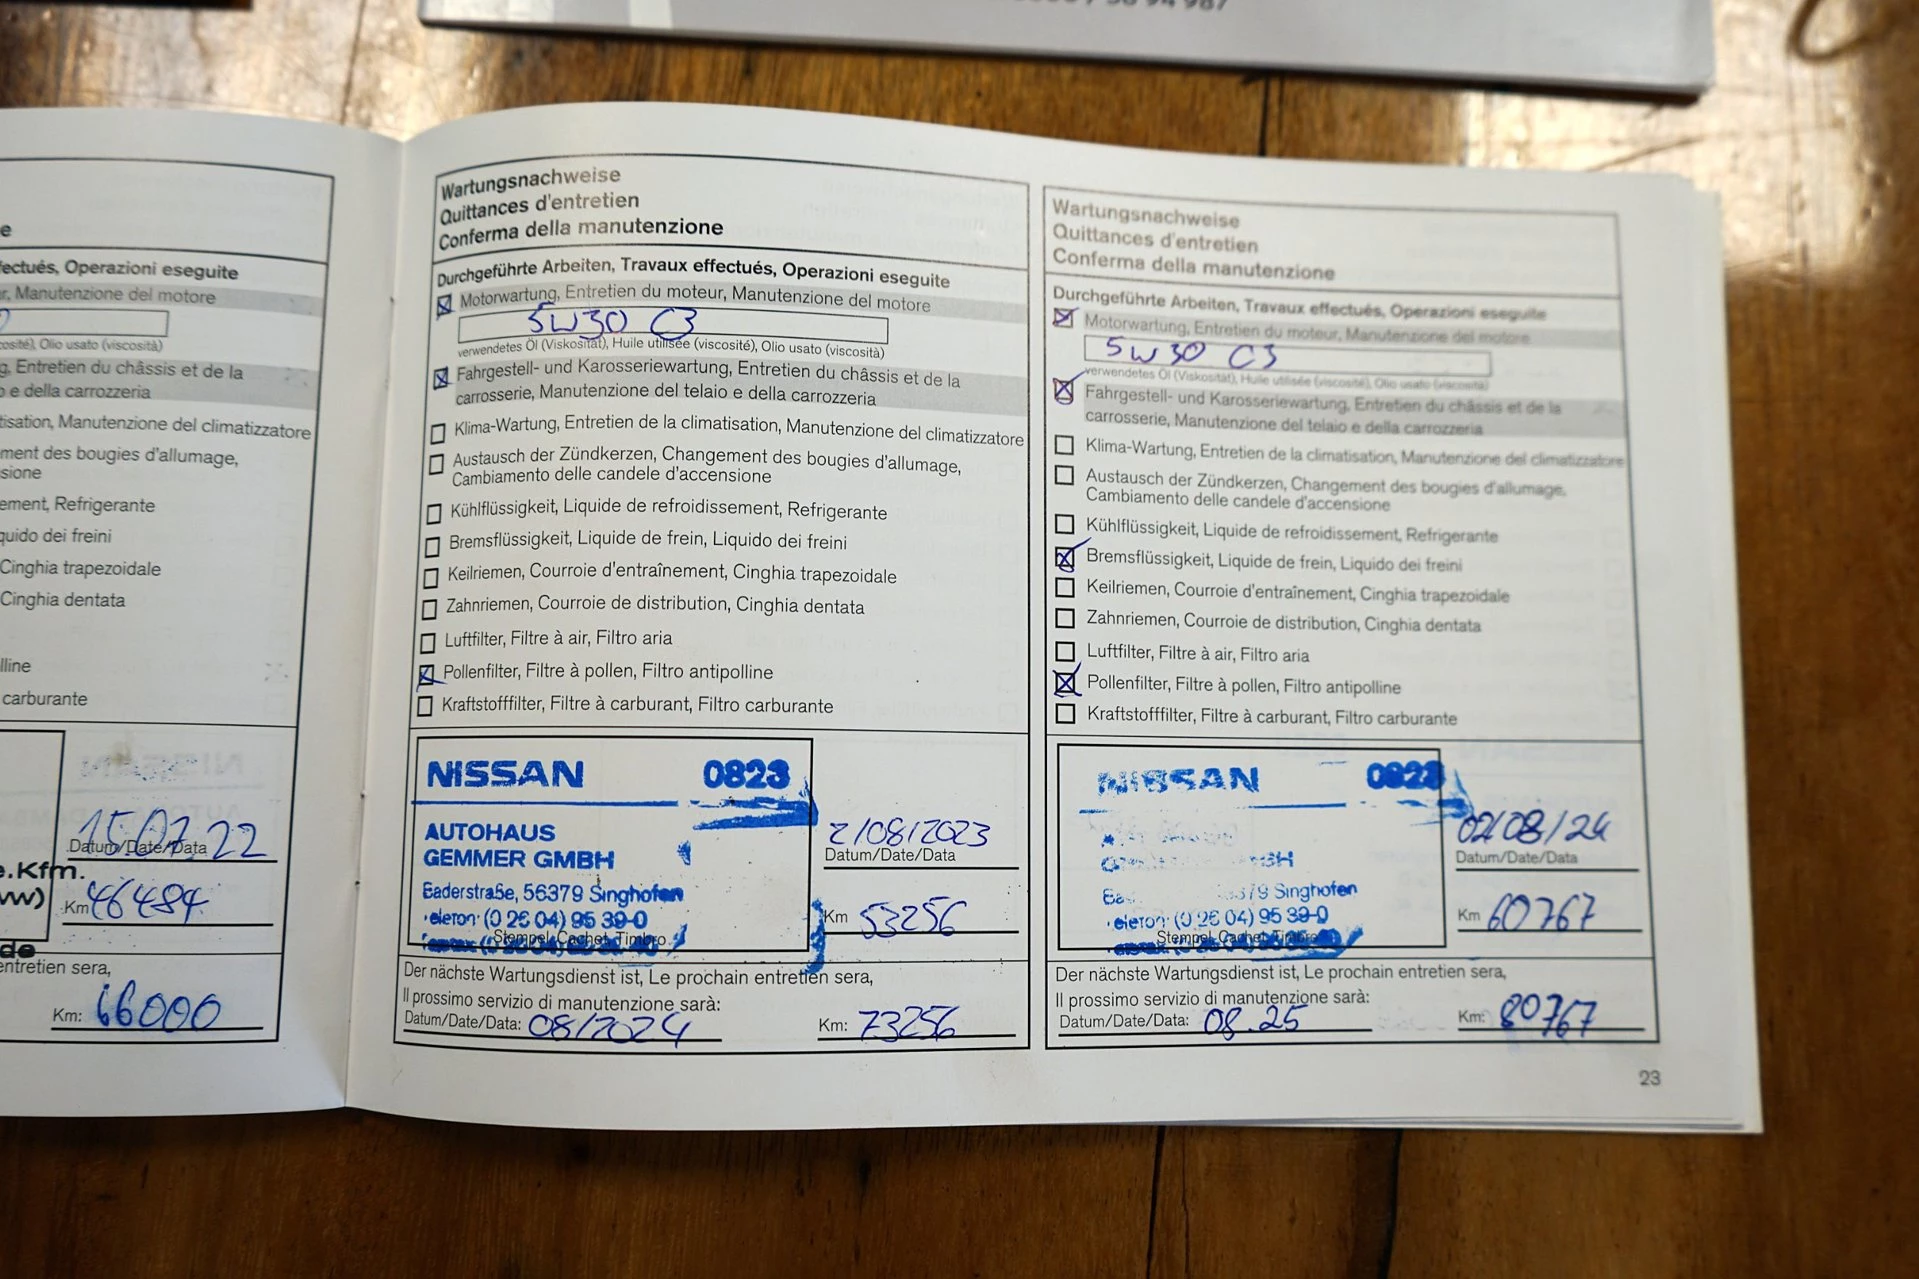 e
fectués, Operazioni eseguite
r, Manutenzione del motore
cosité), Olio usato (viscosità)
g, Entretien du châssis et de la
o e della carrozzeria
tisation, Manutenzione del climatizzatore
ment des bougies d'allumage,
sione
ement, Refrigerante
quido dei freini
Cinghia trapezoidale
Cinghia dentata
lline
carburante
15.07.22
Datum/Date/Data
e.Kfm.
vw)
Km 46484
de
entretien sera,
Km: 66000
Wartungsnachweise
Quittances d'entretien
Conferma della manutenzione
Durchgeführte Arbeiten, Travaux effectués, Operazioni eseguite
Motorwartung, Entretien du moteur, Manutenzione del motore
5W30 C3
verwendetes Öl (Viskosität), Huile utilisée (viscosité), Olio usato (viscosità)
Fahrgestell- und Karosseriewartung, Entretien du châssis et de la
carrosserie, Manutenzione del telaio e della carrozzeria
Klima-Wartung, Entretien de la climatisation, Manutenzione del climatizzatore
Austausch der Zündkerzen, Changement des bougies d'allumage,
Cambiamento delle candele d'accensione
Kühlflüssigkeit, Liquide de refroidissement, Refrigerante
Bremsflüssigkeit, Liquide de frein, Liquido dei freini
Keilriemen, Courroie d'entraînement, Cinghia trapezoidale
Zahnriemen, Courroie de distribution, Cinghia dentata
Luftfilter, Filtre à air, Filtro aria
Pollenfilter, Filtre à pollen, Filtro antipolline
Kraftstofffilter, Filtre à carburant, Filtro carburante
NISSAN 0823
AUTOHAUS
GEMMER GMBH
Baderstraße, 56379 Singhofen
(0 26 04) 95 39-0
Stempel, Cachet, Timbro
2/08/2023
Datum/Date/Data
Km 53256
Der nächste Wartungsdienst ist, Le prochain entretien sera,
Il prossimo servizio di manutenzione sarà:
Datum/Date/Data: 08/2024 Km: 73256
Wartungsnachweise
Quittances d'entretien
Conferma della manutenzione
Durchgeführte Arbeiten, Travaux effectués, Operazioni eseguite
Motorwartung, Entretien du moteur, Manutenzione del motore
5W30 C3
verwendetes Öl (Viskosität), Huile utilisée (viscosité), Olio usato (viscosità)
Fahrgestell- und Karosseriewartung, Entretien du châssis et de la
carrosserie, Manutenzione del telaio e della carrozzeria
Klima-Wartung, Entretien de la climatisation, Manutenzione del climatizzatore
Austausch der Zündkerzen, Changement des bougies d'allumage,
Cambiamento delle candele d'accensione
Kühlflüssigkeit, Liquide de refroidissement, Refrigerante
Bremsflüssigkeit, Liquide de frein, Liquido dei freini
Keilriemen, Courroie d'entraînement, Cinghia trapezoidale
Zahnriemen, Courroie de distribution, Cinghia dentata
Luftfilter, Filtre à air, Filtro aria
Pollenfilter, Filtre à pollen, Filtro antipolline
Kraftstofffilter, Filtre à carburant, Filtro carburante
NISSAN 0823
Singhofen
(0 26 04) 95 39-0
Stempel, Cachet, Timbro
02/08/24
Datum/Date/Data
Km 60767
Der nächste Wartungsdienst ist, Le prochain entretien sera,
Il prossimo servizio di manutenzione sarà:
Datum/Date/Data: 08.25 Km: 80767
23